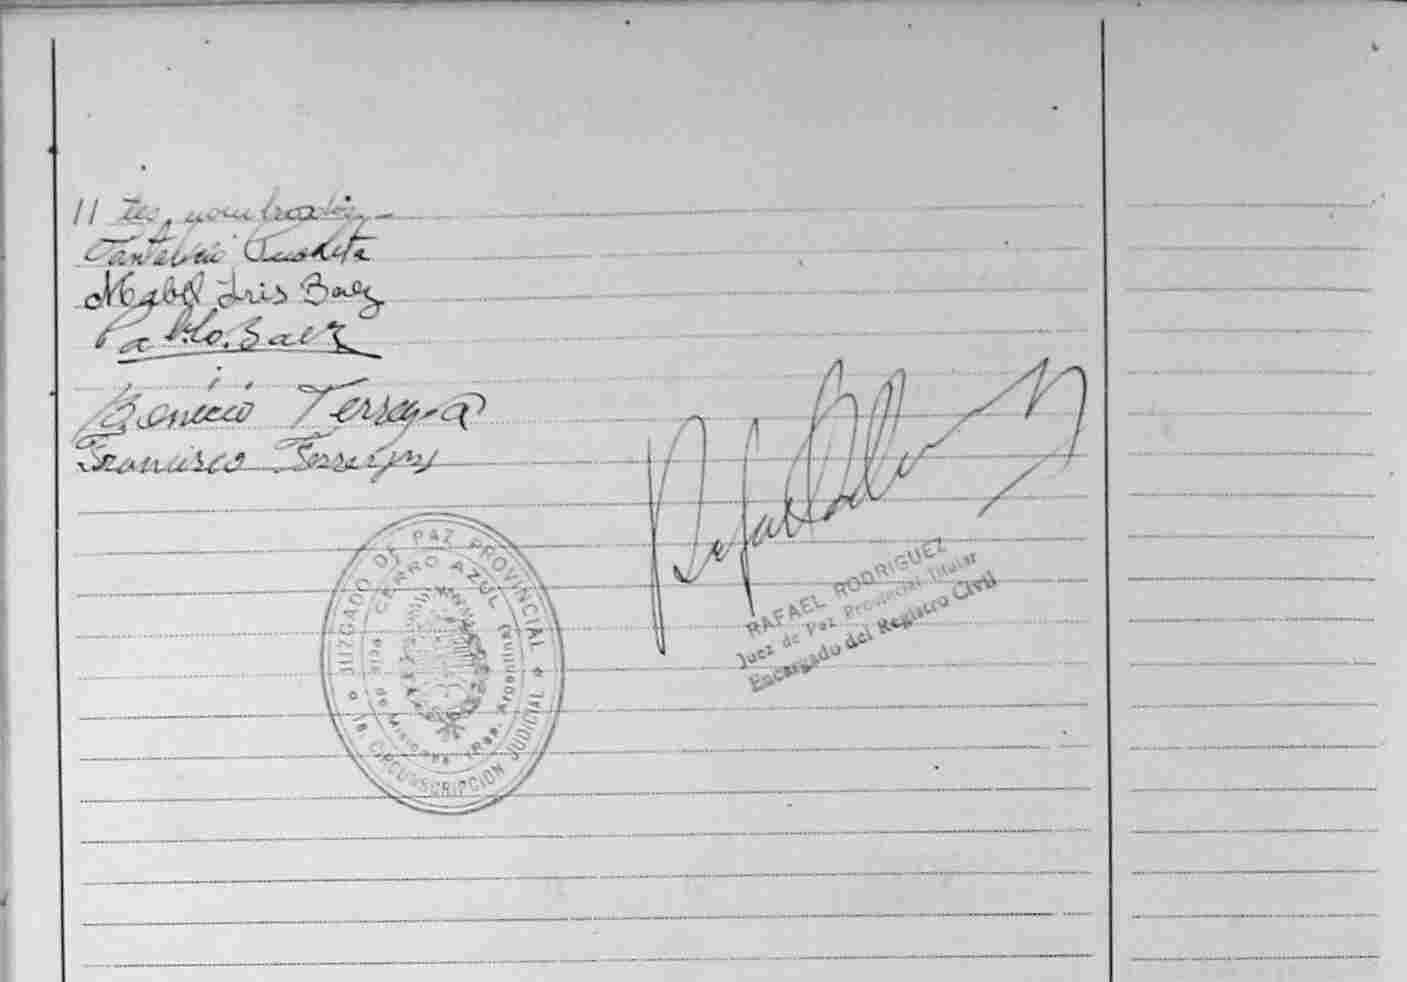 // tes nombrados.-
Mabel Iris Baez
Pablo Baez
Francisco
Rafael
JUZGADO DE PAZ PROVINCIAL
CERRO AZUL
Pcia. de Misiones (Rep. Argentina)
1a. CIRCUNSCRIPCION JUDICIAL
RAFAEL RODRIGUEZ
Juez de Paz Provincial Titular
Encargado del Registro Civil